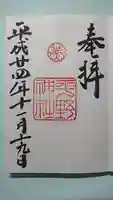 奉拝
野
神社
平成廿四年十一月十九日